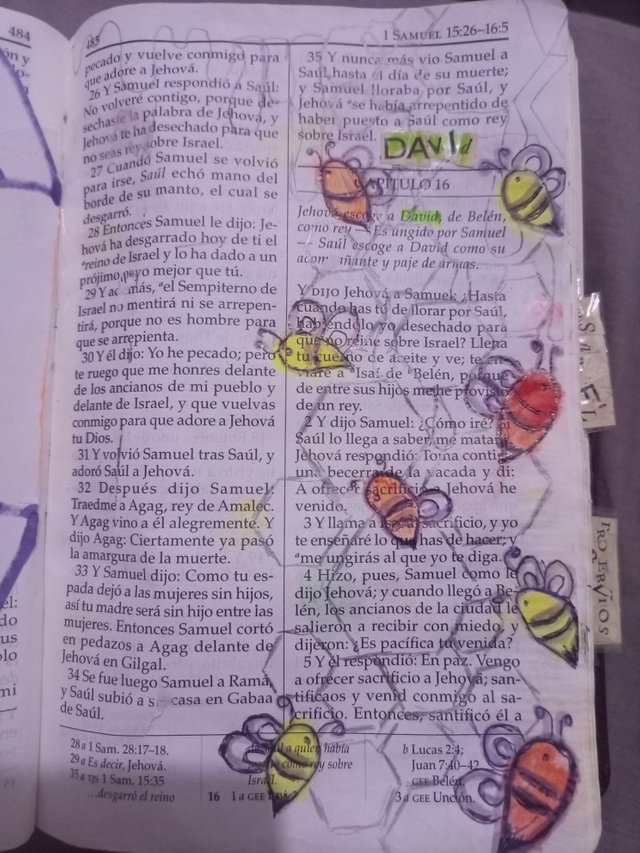 484
485
1 SAMUEL 15:26–16:5
pecado y vuelve conmigo para
que adore a Jehová.
26 Y Samuel respondió a Saúl:
No volveré contigo, porque de-
sechaste la palabra de Jehová, y
Jehová te ha desechado para que
no seas rey sobre Israel.
27 Cuando Samuel se volvió
para irse, Saúl echó mano del
borde de su manto, el cual se
desgarró.
28 Entonces Samuel le dijo: Je-
hová ha desgarrado hoy de ti el
ᵃreino de Israel y lo ha dado a un
prójimo tuyo mejor que tú.
29 Y además, ᵃel Sempiterno de
Israel no mentirá ni se arrepen-
tirá, porque no es hombre para
que se arrepienta.
30 Y él dijo: Yo he pecado; pero
te ruego que me honres delante
de los ancianos de mi pueblo y
delante de Israel, y que vuelvas
conmigo para que adore a Jehová
tu Dios.
31 Y volvió Samuel tras Saúl, y
adoró Saúl a Jehová.
32 Después dijo Samuel:
Traedme a Agag, rey de Amalec.
Y Agag vino a él alegremente. Y
dijo Agag: Ciertamente ya pasó
la amargura de la muerte.
33 Y Samuel dijo: Como tu es-
pada dejó a las mujeres sin hijos,
así tu madre será sin hijo entre las
mujeres. Entonces Samuel cortó
en pedazos a Agag delante de
Jehová en Gilgal.
34 Se fue luego Samuel a Ramá,
y Saúl subió a s casa en Gabaa
de Saúl.
35 Y nunca más vio Samuel a
Saúl hasta el día de su muerte;
y Samuel lloraba por Saúl, y
Jehová ᵃse había arrepentido de
haber puesto a Saúl como rey
sobre Israel.
DAVId
CAPÍTULO 16
Jehová escoge a David, de Belén,
como rey — Es ungido por Samuel
— Saúl escoge a David como su
acompañante y paje de armas.
Y DIJO Jehová a Samuel: ¿Hasta
cuándo has tú de llorar por Saúl,
habiéndolo yo desechado para
que no reine sobre Israel? Llena
tu cuerno de aceite y ve; te en-
viaré a ᵃIsaí de ᵇBelén, porque
de entre sus hijos me he provisto
de un rey.
2 Y dijo Samuel: ¿Cómo iré? Si
Saúl lo llega a saber, me matará.
Jehová respondió: Toma contigo
una becerra de la vacada y di:
A ofrecer sacrificio a Jehová he
venido.
3 Y llama a Isaí al sacrificio, y yo
te enseñaré lo que has de hacer; y
ᵃme ungirás al que yo te diga.
4 Hizo, pues, Samuel como le
dijo Jehová; y cuando llegó a Be-
lén, los ancianos de la ciudad le
salieron a recibir con miedo, y
dijeron: ¿Es pacífica tu venida?
5 Y él respondió: En paz. Vengo
a ofrecer sacrificio a Jehová; san-
tificaos y venid conmigo al sa-
crificio. Entonces, santificó él a
28 a 1 Sam. 28:17–18.
29 a Es decir, Jehová.
35 a TJS 1 Sam. 15:35
...desgarró el reino
a quien había
como rey sobre
Israel.
16 1 a GEE
b Lucas 2:4;
Juan 7:40–42.
GEE Belén.
3 a GEE Unción.
PROERVIOS